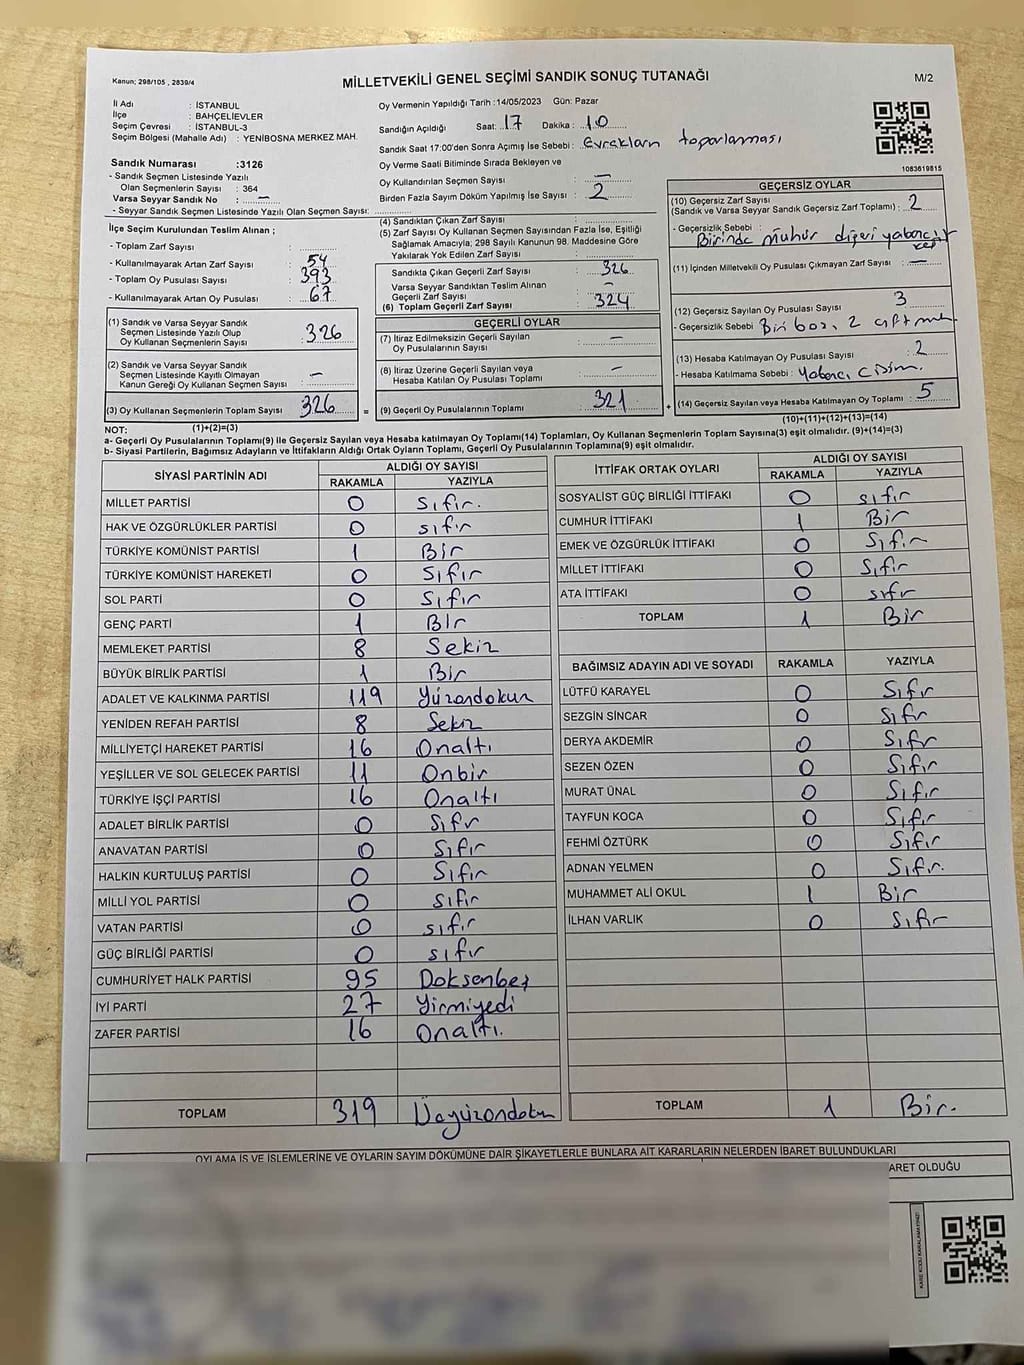 Kanun; 298/105 , 2839/4
MİLLETVEKİLİ GENEL SEÇİMİ SANDIK SONUÇ TUTANAĞI
M/2
İl Adı : İSTANBUL
İlçe : BAHÇELİEVLER
Seçim Çevresi : İSTANBUL-3
Seçim Bölgesi (Mahalle Adı) : YENİBOSNA MERKEZ MAH.
Sandık Numarası :3126
- Sandık Seçmen Listesinde Yazılı
Olan Seçmenlerin Sayısı : 364
Varsa Seyyar Sandık No : —
- Seyyar Sandık Seçmen Listesinde Yazılı Olan Seçmen Sayısı:
Oy Vermenin Yapıldığı Tarih :14/05/2023 Gün: Pazar
Sandığın Açıldığı Saat: 17 Dakika : 10
Sandık Saat 17:00'den Sonra Açımış İse Sebebi : evrakların toparlaması
Oy Verme Saati Bitiminde Sırada Bekleyen ve
Oy Kullandırılan Seçmen Sayısı : —
Birden Fazla Sayım Döküm Yapılmış İse Sayısı : 2
1083619815
İlçe Seçim Kurulundan Teslim Alınan ;
- Toplam Zarf Sayısı :
- Kullanılmayarak Artan Zarf Sayısı : 54
- Toplam Oy Pusulası Sayısı : 393
- Kullanılmayarak Artan Oy Pusulası : 67
(1) Sandık ve Varsa Seyyar Sandık
Seçmen Listesinde Yazılı Olup
Oy Kullanan Seçmenlerin Sayısı : 326
(2) Sandık ve Varsa Seyyar Sandık
Seçmen Listesinde Kayıtlı Olmayan
Kanun Gereği Oy Kullanan Seçmen Sayısı : —
(3) Oy Kullanan Seçmenlerin Toplam Sayısı : 326
(1)+(2)=(3)
(4) Sandıktan Çıkan Zarf Sayısı :
(5) Zarf Sayısı Oy Kullanan Seçmen Sayısından Fazla İse, Eşitliği
Sağlamak Amacıyla; 298 Sayılı Kanunun 98. Maddesine Göre
Yakılarak Yok Edilen Zarf Sayısı :
Sandıkta Çıkan Geçerli Zarf Sayısı : 326
Varsa Seyyar Sandıktan Teslim Alınan
Geçerli Zarf Sayısı : —
(6) Toplam Geçerli Zarf Sayısı : 324
GEÇERLİ OYLAR
(7) İtiraz Edilmeksizin Geçerli Sayılan
Oy Pusulalarının Sayısı : —
(8) İtiraz Üzerine Geçerli Sayılan veya
Hesaba Katılan Oy Pusulası Toplamı : —
= (9) Geçerli Oy Pusulalarının Toplamı : 321 +
GEÇERSİZ OYLAR
(10) Geçersiz Zarf Sayısı : 2
(Sandık ve Varsa Seyyar Sandık Geçersiz Zarf Toplamı)
- Geçersizlik Sebebi :
Birinde mühür diğeri yabancı
(11) İçinden Milletvekili Oy Pusulası Çıkmayan Zarf Sayısı : —
(12) Geçersiz Sayılan Oy Pusulası Sayısı : 3
- Geçersizlik Sebebi Biri boz, 2 çift
(13) Hesaba Katılmayan Oy Pusulası Sayısı : 2
- Hesaba Katılmama Sebebi : Yabancı Cisim.
(14) Geçersiz Sayılan veya Hesaba Katılmayan Oy Toplamı : 5
(10)+(11)+(12)+(13)=(14)
NOT:
a- Geçerli Oy Pusulalarının Toplamı(9) ile Geçersiz Sayılan veya Hesaba katılmayan Oy Toplamı(14) Toplamları, Oy Kullanan Seçmenlerin Toplam Sayısına(3) eşit olmalıdır. (9)+(14)=(3)
b- Siyasi Partilerin, Bağımsız Adayların ve İttifakların Aldığı Ortak Oyların Toplamı, Geçerli Oy Pusulalarının Toplamına(9) eşit olmalıdır.
SİYASİ PARTİNİN ADI ALDIĞI OY SAYISI
RAKAMLA YAZIYLA
MİLLET PARTİSİ 0 sıfır.
HAK VE ÖZGÜRLÜKLER PARTİSİ 0 sıfır
TÜRKİYE KOMÜNİST PARTİSİ 1 Bir
TÜRKİYE KOMÜNİST HAREKETİ 0 Sıfır
SOL PARTİ 0 Sıfır
GENÇ PARTİ 1 Bir
MEMLEKET PARTİSİ 8 Sekiz
BÜYÜK BİRLİK PARTİSİ 1 Bir
ADALET VE KALKINMA PARTİSİ 119 Yüzondokuz
YENİDEN REFAH PARTİSİ 8 Sekiz
MİLLİYETÇİ HAREKET PARTİSİ 16 Onaltı
YEŞİLLER VE SOL GELECEK PARTİSİ 11 Onbir
TÜRKİYE İŞÇİ PARTİSİ 16 Onaltı
ADALET BİRLİK PARTİSİ 0 Sıfır
ANAVATAN PARTİSİ 0 Sıfır
HALKIN KURTULUŞ PARTİSİ 0 Sıfır
MİLLİ YOL PARTİSİ 0 sıfır
VATAN PARTİSİ 0 sıfır
GÜÇ BİRLİĞİ PARTİSİ 0 sıfır
CUMHURİYET HALK PARTİSİ 95 Doksenbeş
İYİ PARTİ 27 Yirmiyedi
ZAFER PARTİSİ 16 Onaltı.
TOPLAM 319 Üçyüzondokuz
İTTİFAK ORTAK OYLARI ALDIĞI OY SAYISI
RAKAMLA YAZIYLA
SOSYALİST GÜÇ BİRLİĞİ İTTİFAKI 0 sıfır
CUMHUR İTTİFAKI 1 Bir
EMEK VE ÖZGÜRLÜK İTTİFAKI 0 Sıfır
MİLLET İTTİFAKI 0 Sıfır
ATA İTTİFAKI 0 sıfır
TOPLAM 1 Bir
BAĞIMSIZ ADAYIN ADI VE SOYADI RAKAMLA YAZIYLA
LÜTFÜ KARAYEL 0 Sıfır
SEZGİN SİNCAR 0 Sıfır
DERYA AKDEMİR 0 Sıfır
SEZEN ÖZEN 0 Sıfır
MURAT ÜNAL 0 Sıfır
TAYFUN KOCA 0 Sıfır
FEHMİ ÖZTÜRK 0 Sıfır
ADNAN YELMEN 0 Sıfır.
MUHAMMET ALİ OKUL 1 Bir
İLHAN VARLIK 0 Sıfır
TOPLAM 1 Bir.
OYLAMA İŞ VE İŞLEMLERİNE VE OYLARIN SAYIM DÖKÜMÜNE DAİR ŞİKAYETLERLE BUNLARA AİT KARARLARIN NELERDEN İBARET BULUNDUKLARI
ARET OLDUĞU
KARE KODU KARALAMAYINIZ!